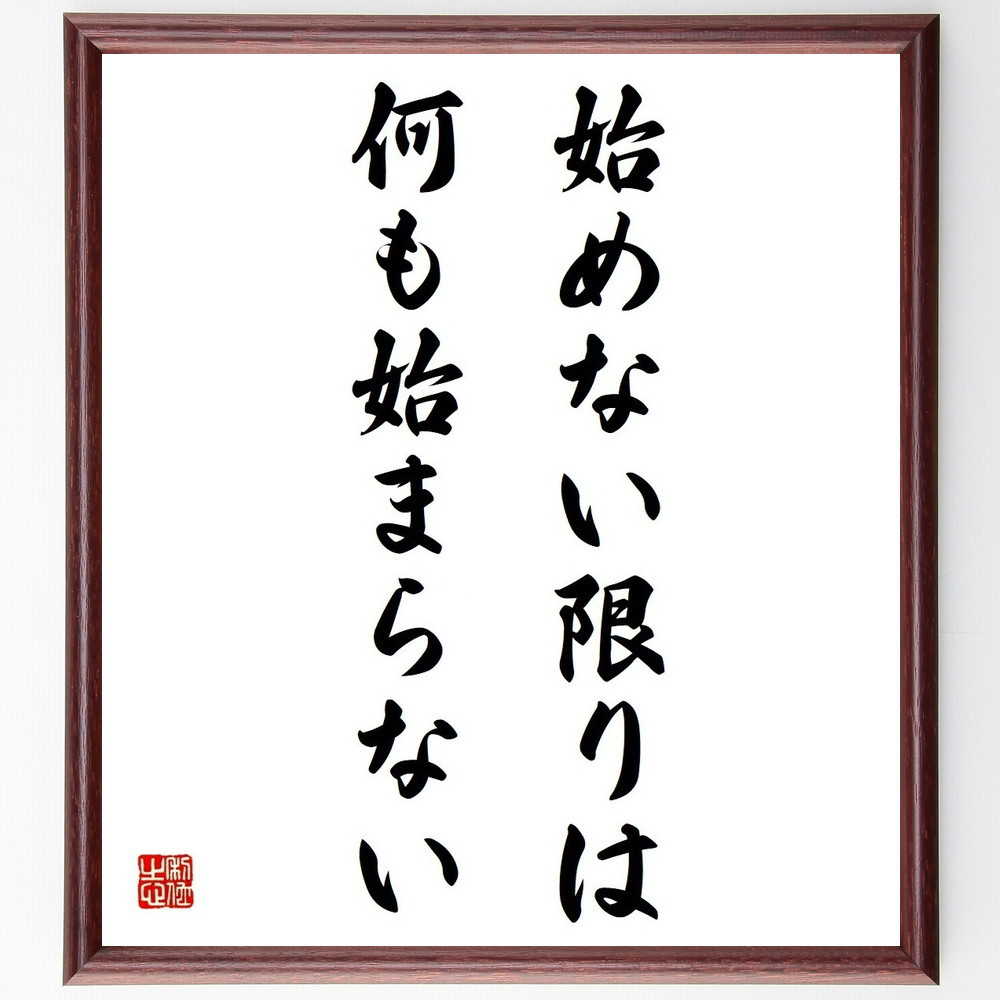 始めない限りは
何も始まらない